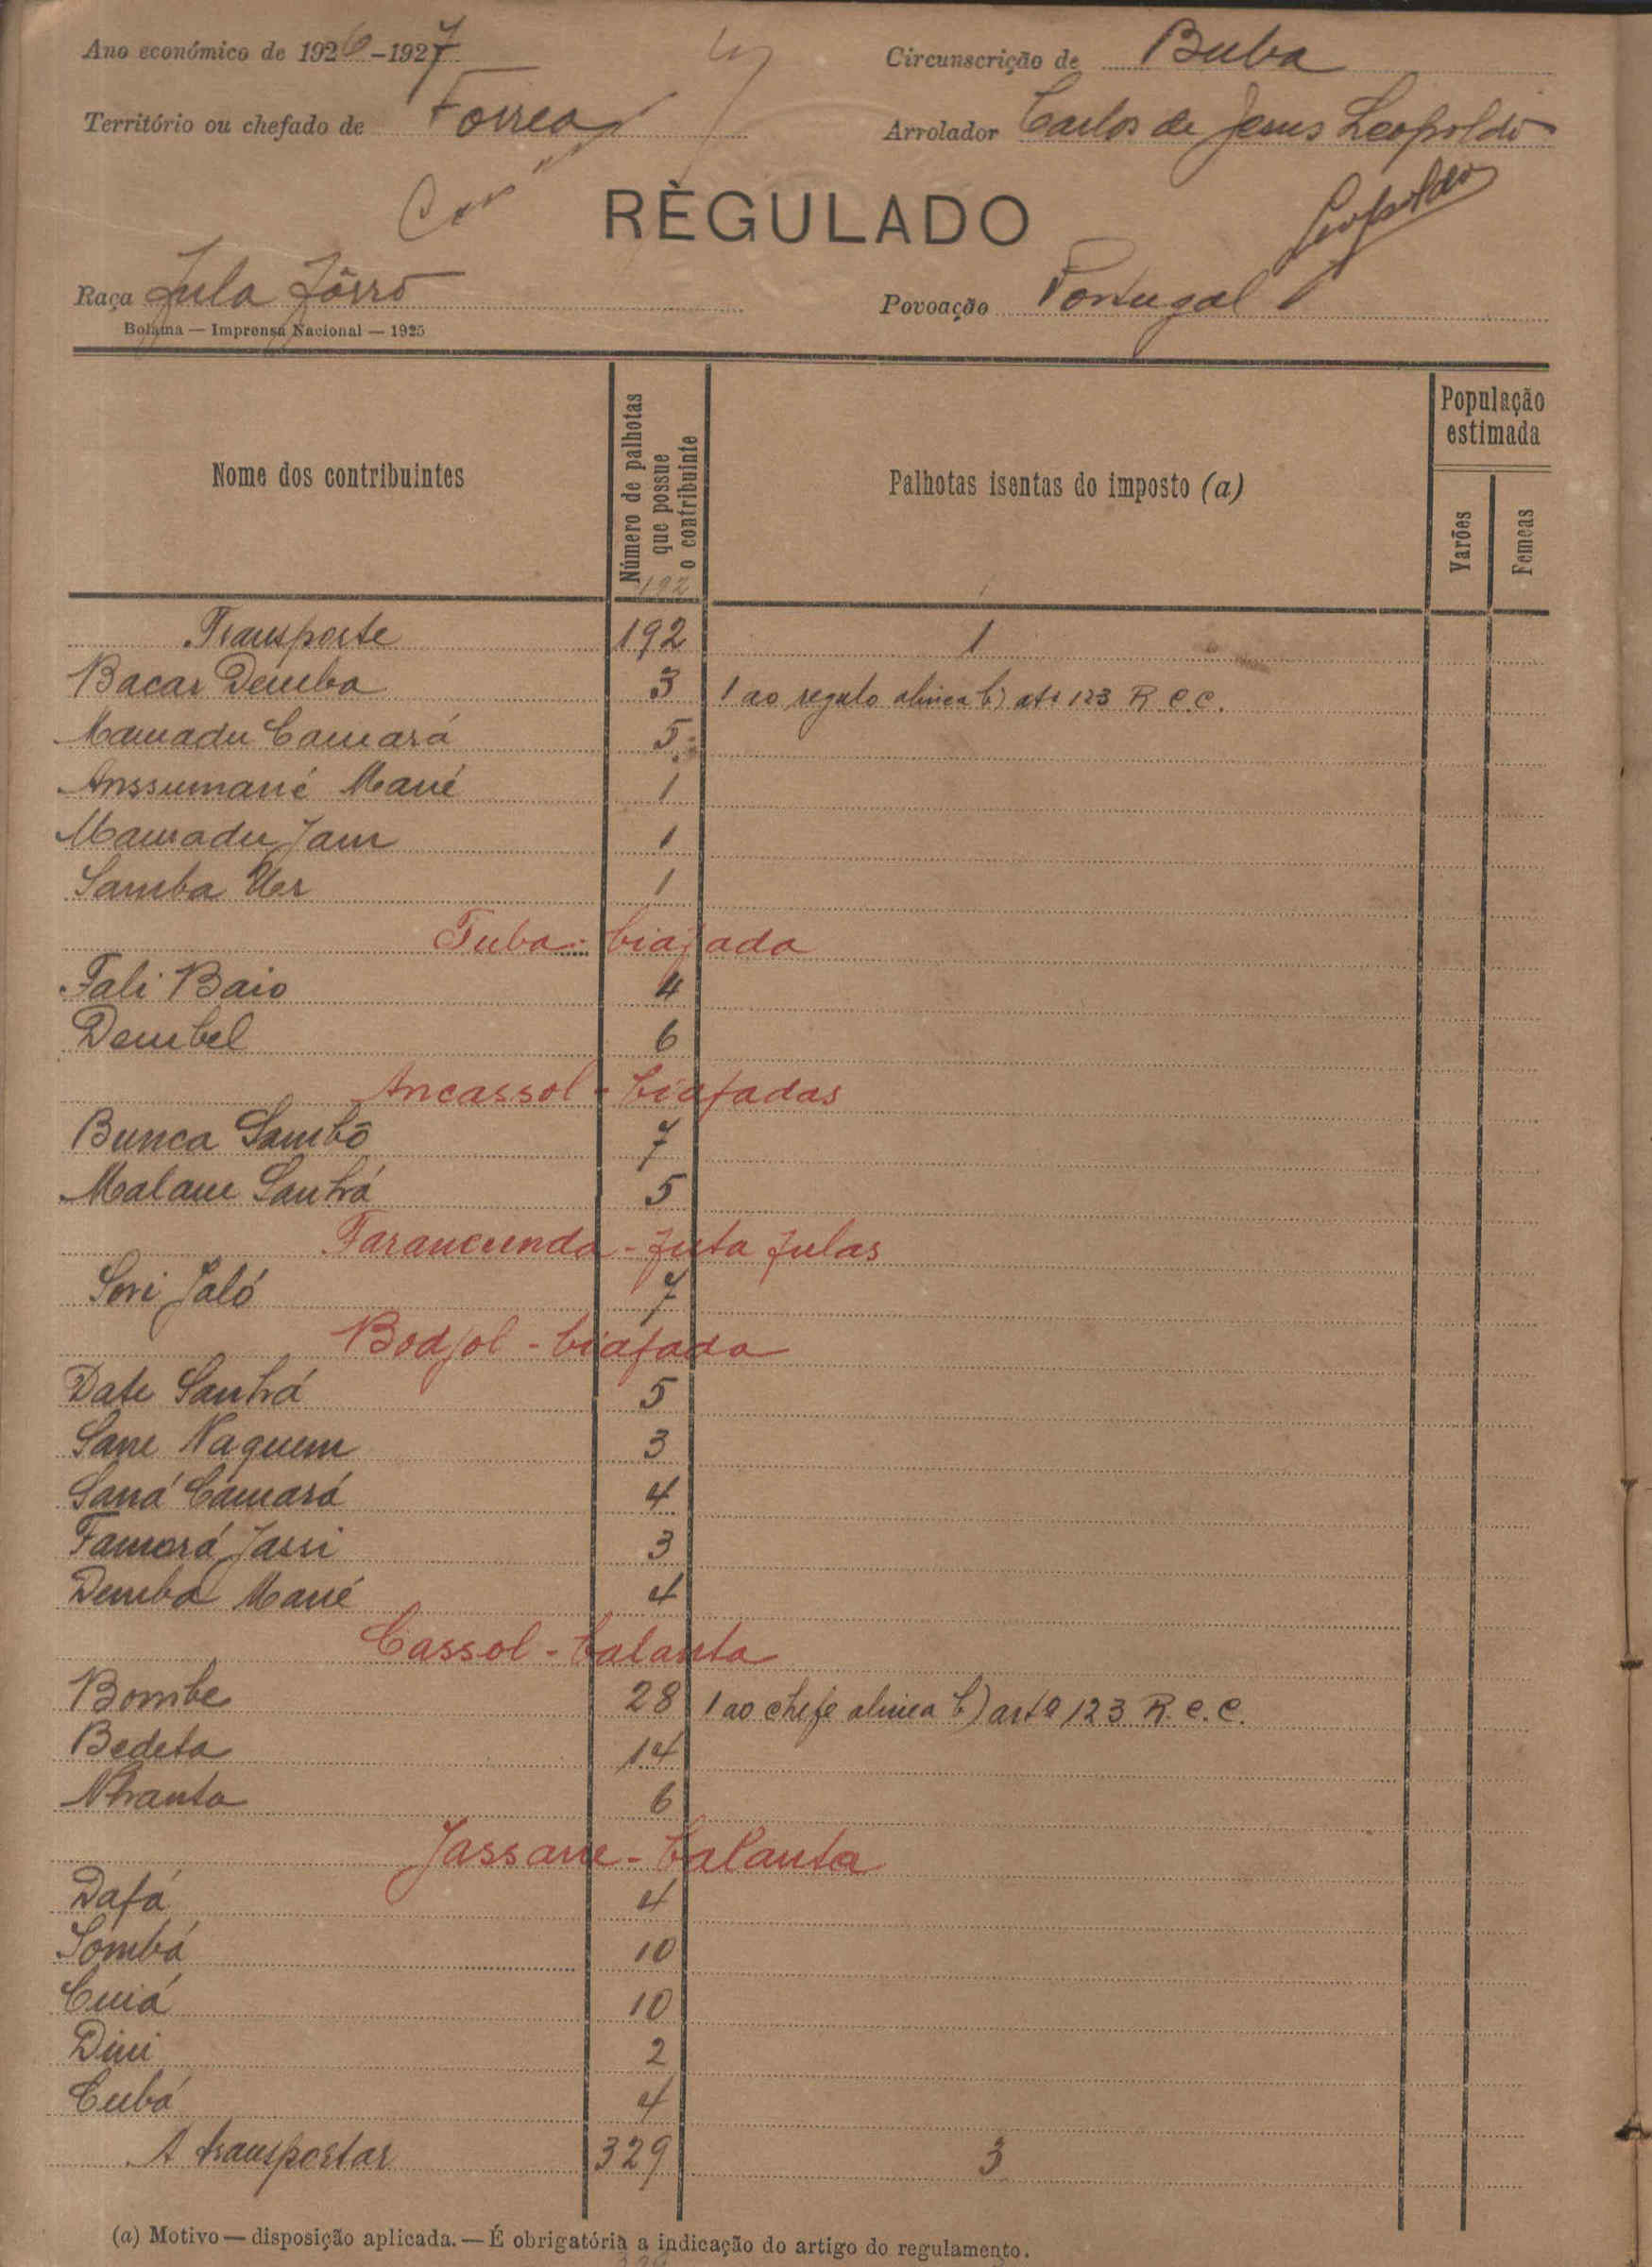 Ano económico de 1926-1927
Circunscrição de Buba
Território ou chefado de Forreá
Arrolador Carlos de Jesus Leopoldo
Leopoldo
RÈGULADO
Raça Fula Fôrro
Povoação Portugal
Bolama — Imprensa Nacional — 1925
Nome dos contribuintes
Número de palhotas que possue o contribuinte
Palhotas isentas do imposto (a)
População estimada
Varões
Femeas
192
Transporte 192 1
Bacar Demba 3 1 ao regulo alinea b) artº 123 R. C. C.
Mamadu Camará 5
Anssumané Mané 1
Mamadu Jam 1
Samba Uer 1
Tuba - biafada
Fali Baio 4
Dembel 6
Ancassol - biafadas
Bunca Sambô 7
Malam Sanhá 5
Tarancunda - futa fulas
Sori Jaló 7
Bodjol - biafada
Date Sanhá 5
Sane Naquem 3
Saná Camará 4
Famará Jassi 3
Demba Mané 4
Cassol - balanta
Bombe 28 1 ao chefe alinea b) artº 123 R. C. C.
Bedeta 14
Nhanta 6
Jassane - balanta
Dafá 4
Sombá 10
Cuiá 10
Dini 2
Cubá 4
A transportar 329 3
(a) Motivo — disposição aplicada. — É obrigatória a indicação do artigo do regulamento.
329